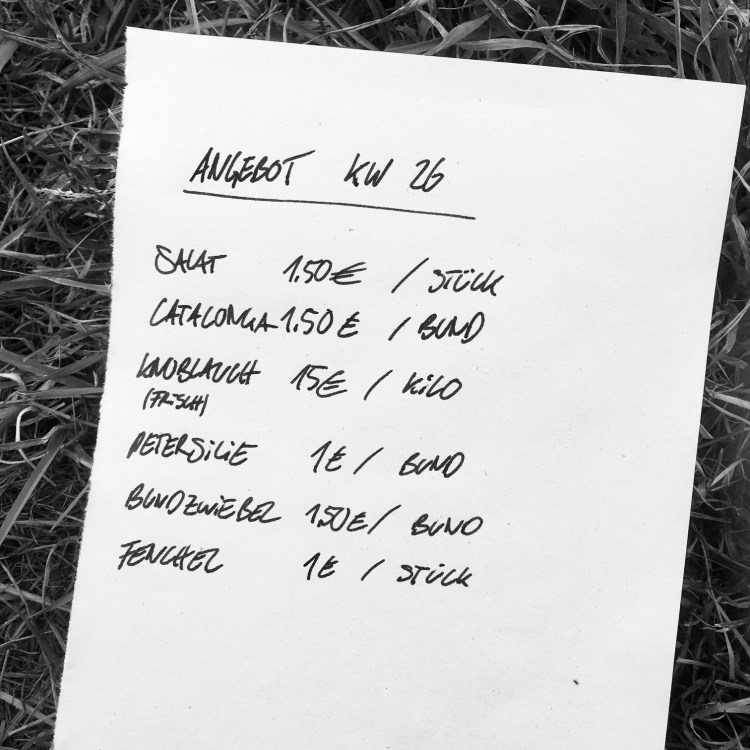 ANGEBOT KW 26
SALAT 1.50€ / STÜCK
CATALONIA 1.50€ / BUND
KNOBLAUCH 15€ / KILO
(FRISCH)
PETERSILIE 1€ / BUND
BUNDZWIEBEL 1.50€ / BUND
FENCHEL 1€ / STÜCK